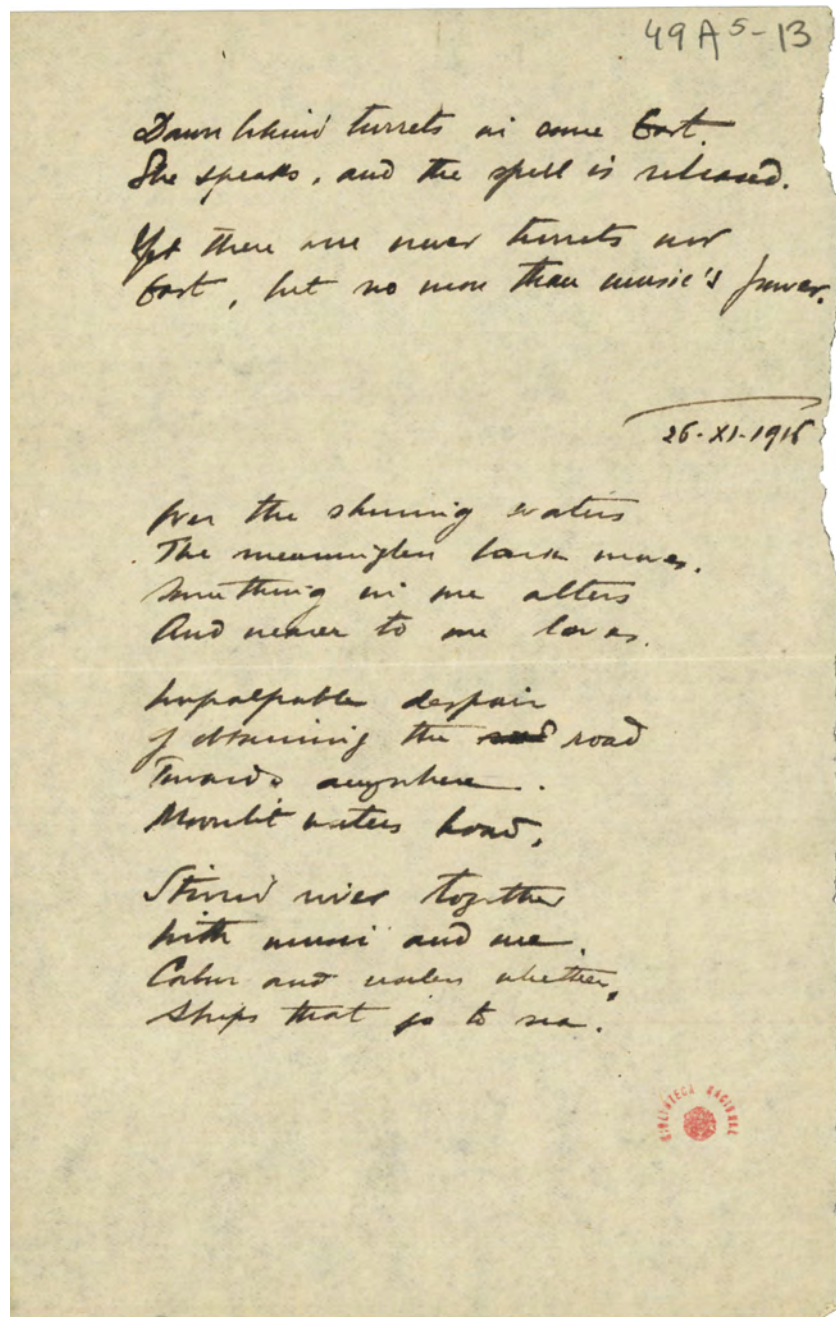 49A5-13
Dawn behind turrets in some East.
She speaks, and the spell is released.
Yet there are never turrets nor
East, but no more than music's power.
26-XI-1916
Over the shining waters
The meaningless bark moves.
Something in me alters
And nearer to me loves.
Impalpable despair
Of obtaining the road
Towards anywhere.
Moonlit waters
Stirred together
With music and me.
Calm and useless whether,
Ships that go to sea.
BIBLIOTECA NACIONAL